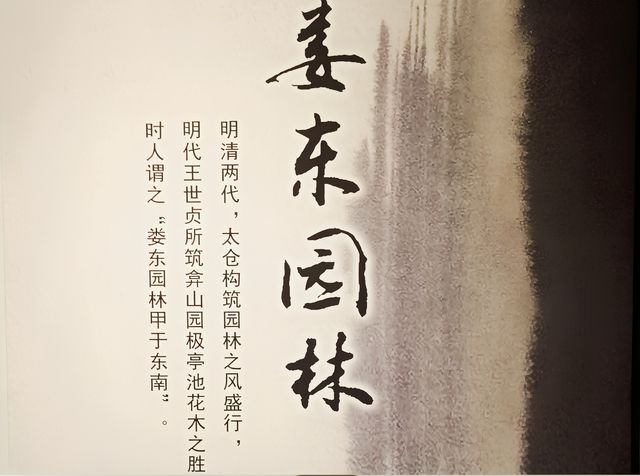 娄东园林
明清两代，太仓构筑园林之风盛行，
明代王世贞所筑弇山园极亭池花木之胜
时人谓之“娄东园林甲于东南”。